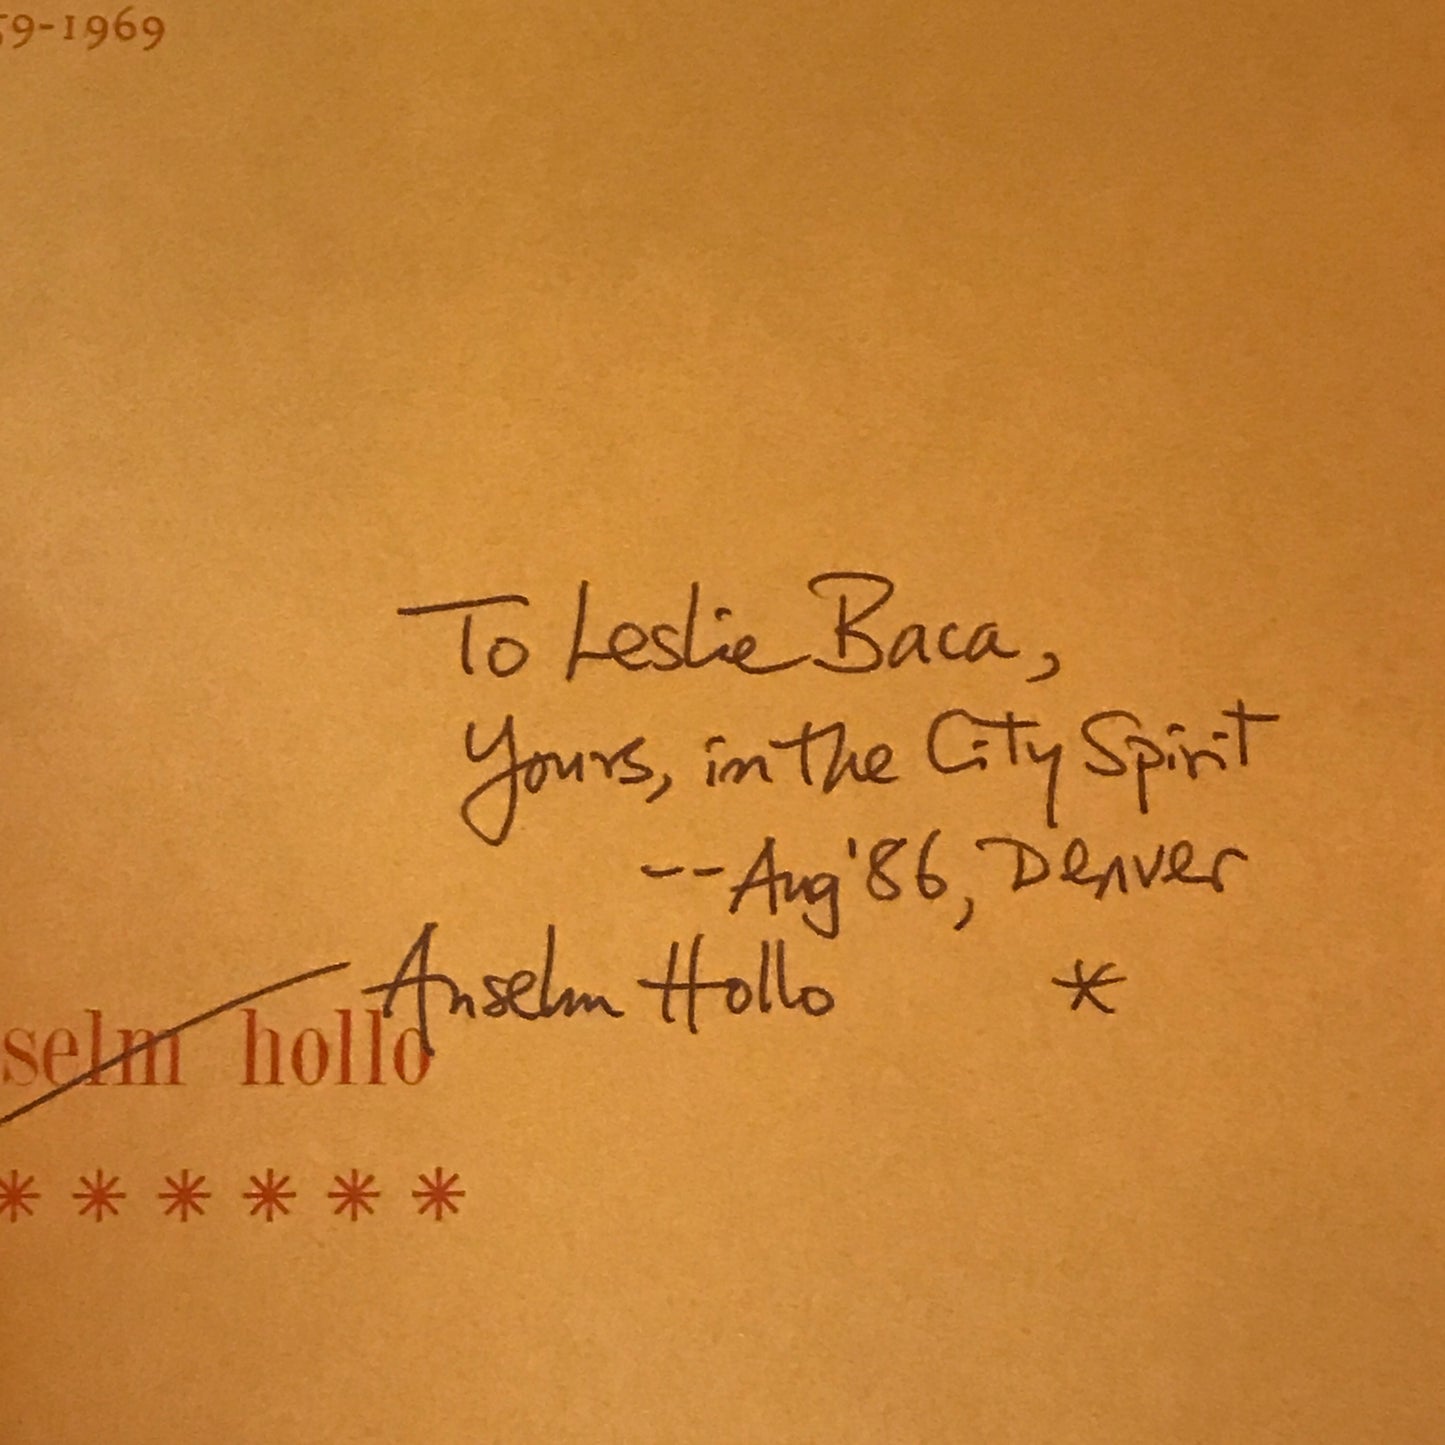 59-1969
To Leslie Baca,
Yours, in the City Spirit
-- Aug '86, Denver
Anselm Hollo *
selm hollo
* * * * * *